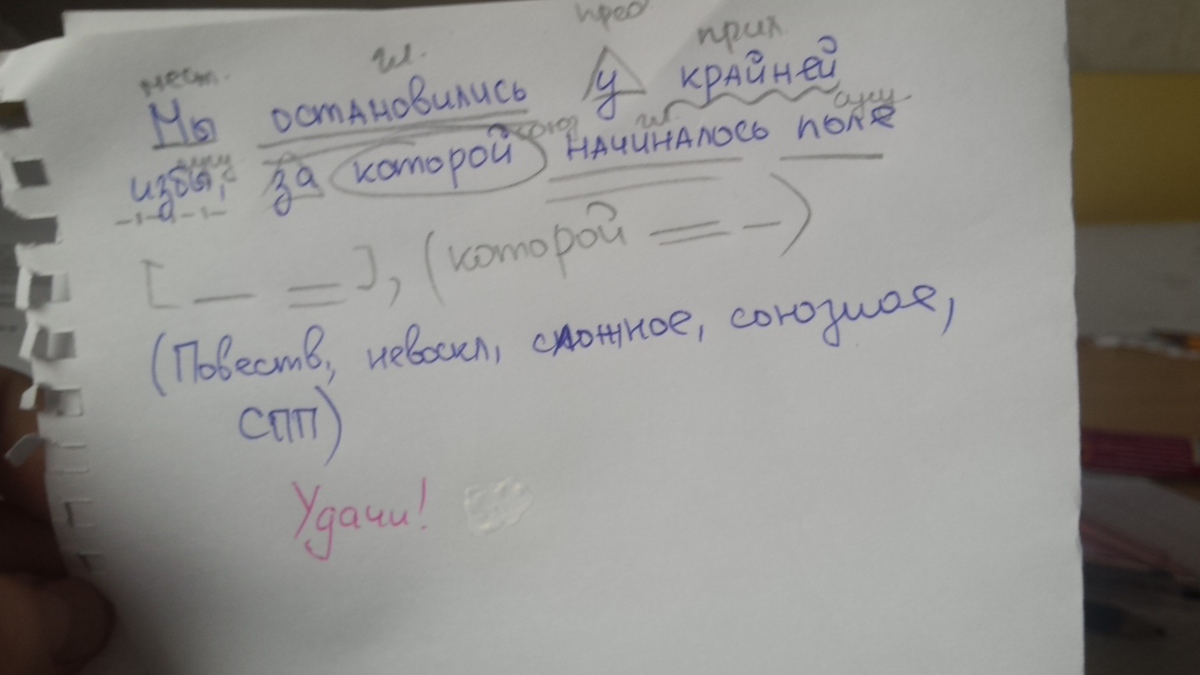 мест. гл. пред прил
Мы остановились у крайней
сущ союз гл. сущ.
избы, за которой начиналось поле
[ — = ], (которой = —)
(Повеств, невоскл, сложное, союзное,
СПП)
Удачи!